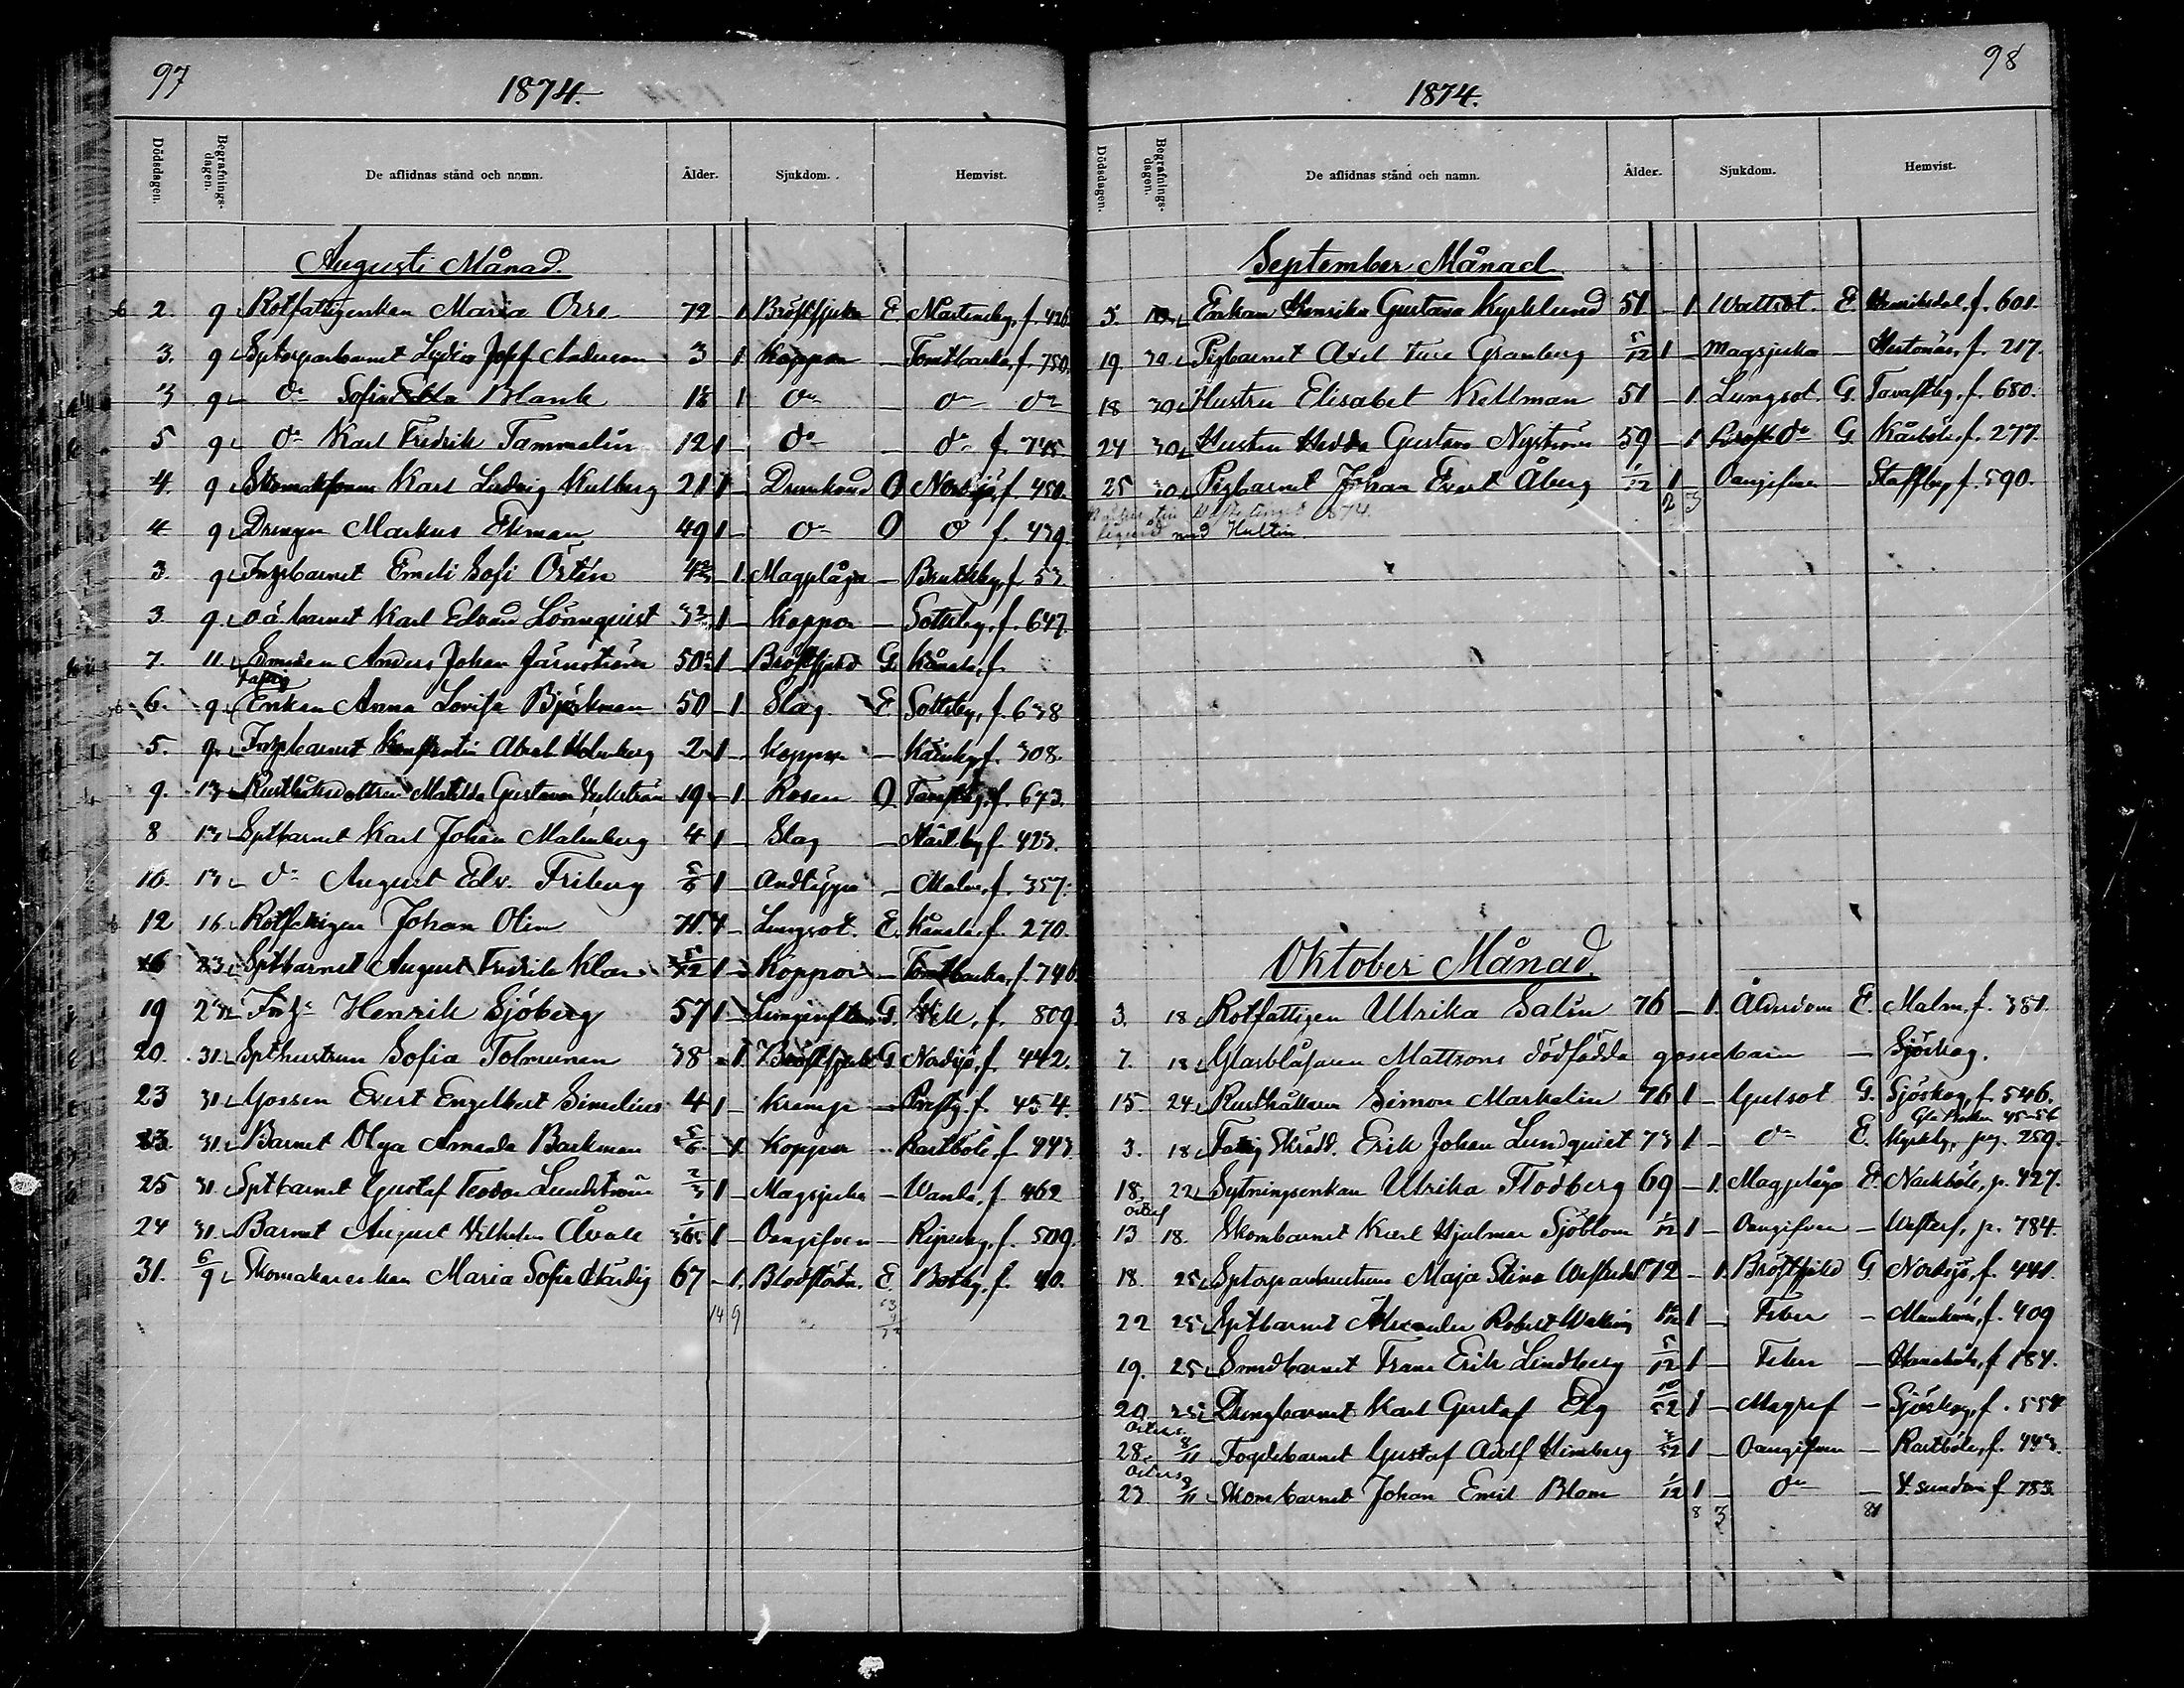 97
1874.
Dödsdagen. Begrafnings-dagen. De aflidnas stånd och namn. Ålder. Sjukdom. Hemvist.
Augusti Månad.
2. 9 Rotfattigenkan Maria Orre 72 - 1 Bröstsjukd. E. Martensby, f. 426
3. 9 Sptorparbarnet Lydia Josef. Anderson 3 - 1 Koppor - Tomtbacka, f. 750.
3 9 do Sofia Blank 1 do - do do
5 9 do Karl Fredrik Tammelin 12 1 do - do f. 745.
4. 9 Karl Ludvig Kulberg 21 1 - Drunknad O Nordsjö, f. 450.
4 9 Drengen Markus Ekman 49 1 - do O do f. 439.
3. 9 Emeli Sofi Östén - 1. Magplåga - f. 53.
3. 9 oä. barnet Karl Edvard Lönnqvist 1 - Koppor - Sottsby, f. 647.
7. 11. Smeden Anders Johan Järnström 50 1 - Bröstsjukd G. Kånala, f.
6. 9. Fattig Enkan Anna Lovisa Björkman 50 - 1 Slag E. Sottsby, f. 638
5. 9. Konstantin Abel Holmberg 2 1 - Koppor - f. 308.
9. 13 Matilda Gustava 19 - 1 Rosen O f. 673.
8 13 Sptbarnet Karl Johan Malmberg 4 1 - Slag - f. 423.
10. 13 do August Edv. Friberg 5/6 1 - Andtäppa - Malm, f. 357.
12 16. Rotfattigen Johan Olin 71. 1 - Lungsot. E. Kånala, f. 270.
16 23. Sptbarnet August Fredrik Klar 5/12 1 - Koppor - Tomtbacka, f. 746
19 23 Henrik Sjöberg 57 1 - G. Wik, f. 809.
20. 31. Spthustrun Sofia Tolmunen 38 - 1. Bröstsjukd G. Nordsjö, f. 442.
23 31. Gossen Evert Engelbert Simelius 4 1 - Kramp - f. 454.
23. 31. Barnet Olga Amanda Backman 5/6 - 1. Koppor - Rastböle, f. 443
25 31. Sptbarnet Gustaf Teodor Lundström 2/3 1 - Magsjuka - Wanda, f. 462
24 31. Barnet August Vilhelm 1/365 1 - Oangifven - Ripuby, f. 509.
31. 6/9 Skomakarenkan Maria Sofia Härdig 67 - 1. E. Botby, f. 40.
14 9
98
1874.
Dödsdagen. Begrafnings-dagen. De aflidnas stånd och namn. Ålder. Sjukdom. Hemvist.
September Månad
5. 10. Enkan Henrika Gustava Kyrklund 51 - 1 Wattsot. E. Henriksdal, f. 601.
19. 30. Pigbarnet Axel Ture Granberg 5/12 1 - Magsjuka - f. 217.
18 30. Hustru Elisabet Kellman 51 - 1 Lungsot. G. Tavastby, f. 680.
24 30. Hustru Hedda Gustava Nyström 59 - 1 Bröst do G. Kårböle, f. 277.
25 30. Pigbarnet Johan Evert Åberg 1/12 1 - Oangifven - Staffby, f. 590.
2 3
1874.
Hultin.
Oktober Månad.
3. 18. Rotfattigen Ulrika Salin 76 - 1. Ålderdom E. Malm, f. 381.
7. 18. Glasblåsaren Mattsons dödfödda gossebarn - Sjöskog.
15. 24. Rusthållaren Simon Markelin 76 1 - Gulsot G. Sjöskog, f. 546.
45-56
3. 18. Fattig Skrädd. Erik Johan Lundqvist 73 1 - do E. Kyrkby, pag. 259.
18. 22. Sytningsenkan Ulrika Flodberg 69 - 1. Magplåga E. Nackböle, p. 427.
13 18. Skombarnet Karl Hjalmar Sjöblom 1/12 1 - Oangifven - p. 784.
18. 25. Maja Stina 72 - 1. Bröstsjukd G. Nordsjö, f. 441.
22 25. Sptbarnet Alexander Robert 1 - Feber - f. 409
19. 25 Smedbarnet Frans Erik Lindberg 5/12 1 - Feber - f. 184.
20 25. Drengbarnet Karl Gustaf Elg 10/52 1 - Magref - Sjöskog, f. 554
28. 8/11 Fogdebarnet Gustaf Adolf Himberg 1 - Oangifven - Rastböle, f. 443.
23 8/11 Skombarnet Johan Emil Blom 1/12 1 - do - f. 783.
8 3